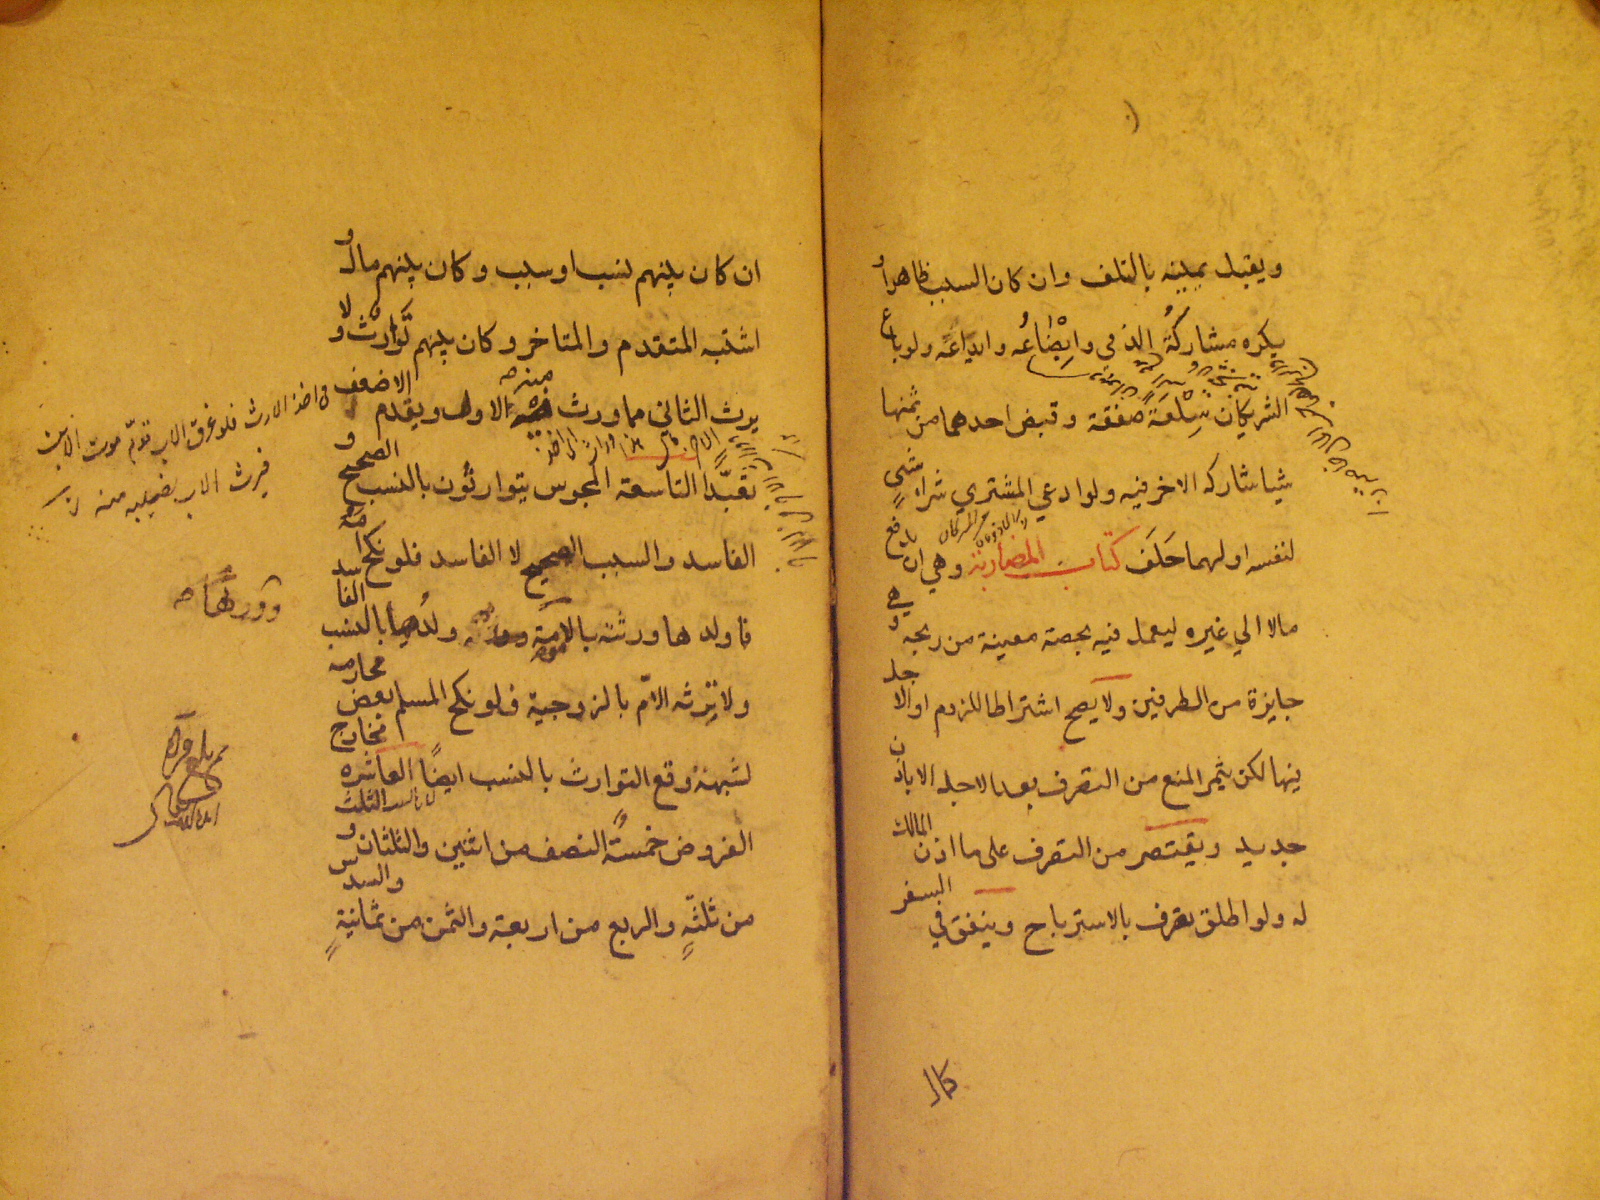 ويقبل بيمينه بالتلف وان كان السبب ظاهرا و
يكره مشاركةُ الذمي وابْضاعُه وايداعُه ولو باع
الشريكان سِلْعَةً صفقة وقبض احدهما من ثمنها
شيا شاركه الاخر فيه ولو ادعي المشتري شراء شيٍ
لنفسه او لهما حَلَف كتاب المضاربة وهي ان يدفع
مالا الي غيره ليعمل فيه بحصة معينة من ربحه و هي
جايزة من الطرفين ولا يصح اشتراط اللزوم او الاجل
فيها لكن يثمر المنع من التصرف بعد الاجل الا باذن
جديد ويقتصر من التصرف على ما اذن المالك
له ولو اطلق تصرف بالاسترباح وينفق في السفر
ان كان بينهم نسب او سبب وكان بينهم مال و
اشتبه المتقدم والمتاخر وكان بينهم تَوارُث ولا
يرث الثاني مما ورث منه الاول ويقدم الاضعف
تعَبّدًا التاسعة المجوس يتوارثون بالنسب الصحيح و
الفاسد والسبب الصحيح لا الفاسد فلو نكح امه
فاولدها ورثته بالامومة وورثه ولدُها بالنسب الفاسد
ولا تِرثه الامّ بالزوجية فلو نكح المسلم بعض محارمه
لشبهة وقع التوارث بالنسب ايضًا العاشره مخارج
الفروض خمسةٌ النصف من اثنين والثلثان و الثلث
من ثلثةٍ والربع من اربعة والثمن من ثمانيةٍ والسدس
في اخذ الارث فلو غرق الاب قدّم موت الابن
فيرث الاب نصيبه منه
وورثها صح
بلغ قراءة